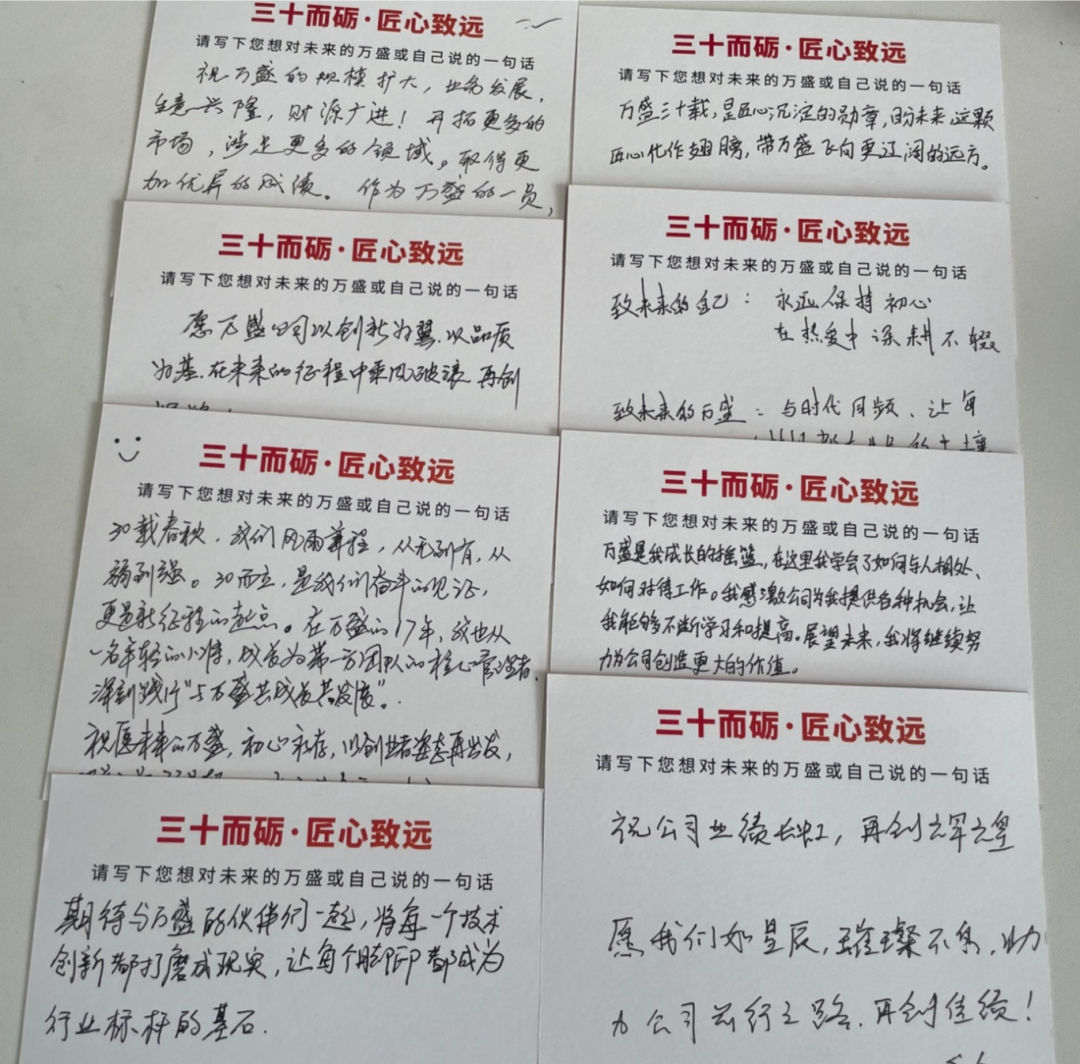 三十而砺·匠心致远
请写下您想对未来的万盛或自己说的一句话
祝万盛的规模扩大，业务发展，
生意兴隆，财源广进！开拓更多的
市场，涉足更多的领域。取得更
加优异的成绩。作为万盛的一员，
三十而砺·匠心致远
请写下您想对未来的万盛或自己说的一句话
愿万盛公司以创新为翼，以品质
为基，在未来的征程中乘风破浪 再创
三十而砺·匠心致远
请写下您想对未来的万盛或自己说的一句话
30载春秋，我们风雨兼程，从无到有，从
弱到强。30而立，是我们奋斗的见证，
更是新征程的起点。在万盛的17年，我也从
一名年轻的小将，成长为第一方团队的核心管理者，
深刻践行“与万盛共成长共发展”。
祝愿未来的万盛，初心永存，以创业者姿态再出发，
三十而砺·匠心致远
请写下您想对未来的万盛或自己说的一句话
期待与万盛的伙伴们一起，将每一个技术
创新都打磨成现实，让每个脚印都成为
行业标杆的基石.
三十而砺·匠心致远
请写下您想对未来的万盛或自己说的一句话
万盛三十载，是匠心沉淀的勋章，盼未来这颗
匠心化作翅膀，带万盛飞向更辽阔的远方。
三十而砺·匠心致远
请写下您想对未来的万盛或自己说的一句话
致未来的自己：永远保持初心
在热爱中深耕不辍
致未来的万盛：与时代同频、让每
的土壤
三十而砺·匠心致远
请写下您想对未来的万盛或自己说的一句话
万盛是我成长的摇篮，在这里我学会了如何与人相处、
如何对待工作。我感激公司为我提供各种机会，让
我能够不断学习和提高。展望未来，我将继续努
力为公司创造更大的价值。
三十而砺·匠心致远
请写下您想对未来的万盛或自己说的一句话
祝公司业绩长虹，再创辉煌
愿我们如星辰，璀璨不息，助
力公司前行之路，再创佳绩！